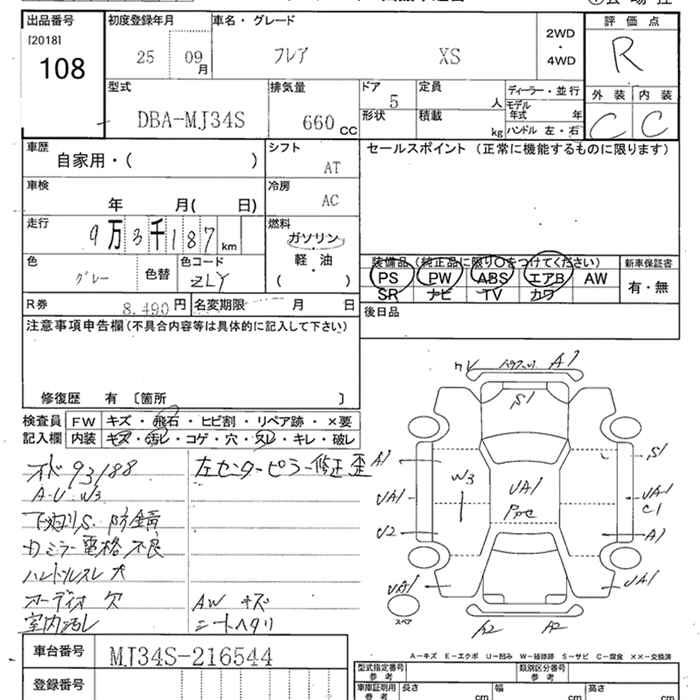 出品番号 初度登録年月 車名・グレード 評価点
[2018]
108
25 09月 フレア XS 2WD・4WD R
型式 排気量 ドア 定員 ディーラー・並行 外装 内装
DBA-MJ34S 660cc 5 人 モデル年式 年 C C
形状 積載 kg ハンドル 左・右
車歴 シフト セールスポイント (正常に機能するものに限ります)
自家用・( ) AT
車検 冷房
年 月( 日) AC
走行 燃料
9万3千187km ガソリン
軽・油
( )
色 色替 色コード 装備品 (純正品に限り○をつけてください) 新車保証書
グレー ZLY PS PW ABS エアB AW 有・無
SR ナビ TV カワ
R券 8,490円 名変期限 月 日 後日品
注意事項申告欄(不具合内容等は具体的に記入して下さい)
修復歴 有 〔箇所 〕
検査員 FW キズ・飛石・ヒビ割・リペア跡・×要
記入欄 内装 キズ・汚レ・コゲ・穴・スレ・キレ・破レ
オド93188 左センターピラー修正歪
A-U W3
下廻りS 防錆
ミラー電格不良
ハンドルスレ大
オーディオ欠 AW キズ
室内汚レ シートヘタリ
A1
S1
A1 S1
W3
UA1 UA1 UA1
C1
U2 A1
UA1 UA1
スペア
A2 A2
A-キズ E-エクボ U-凹み W-補修跡 S-サビ C-腐食 ××-交換済
車台番号 MJ34S-216544
登録番号
型式指定番号 参考 類別区分番号 参考
車庫証明用 参考 長さ cm 幅 cm 高さ cm